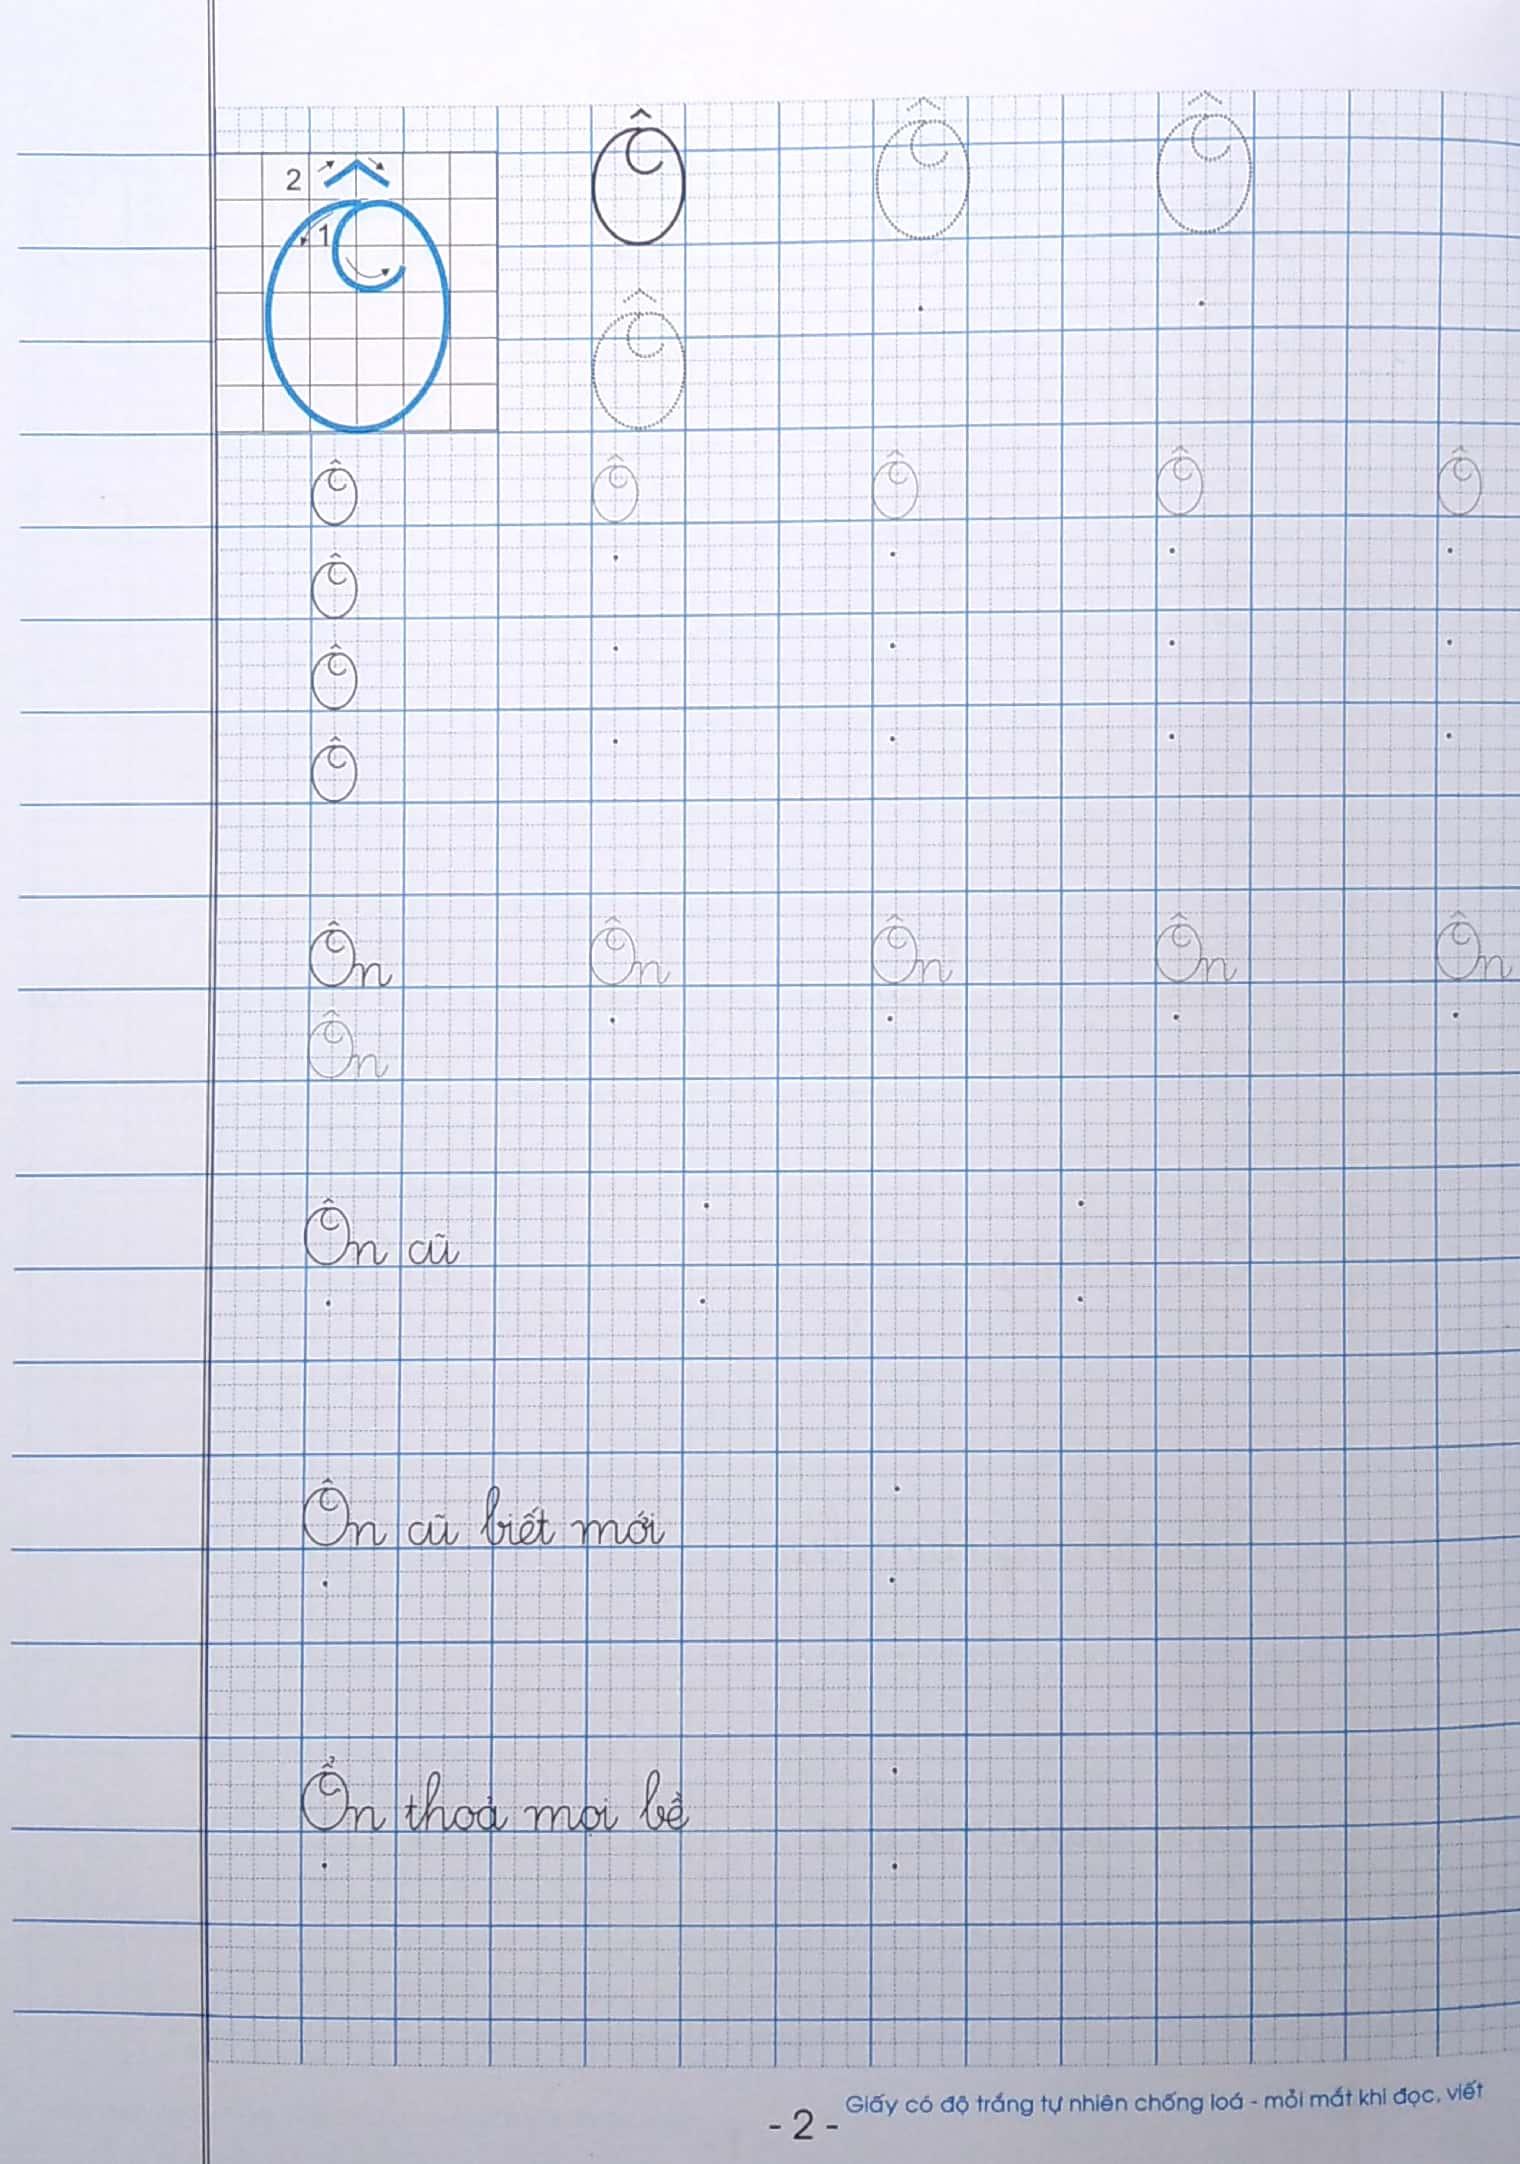 2
1
Ô Ô Ô Ô
Ô
Ô Ô Ô Ô Ô
Ô
Ô
Ô
Ôn Ôn Ôn Ôn Ôn
Ôn
Ôn cũ
Ôn cũ biết mới
Ổn thoả mọi bề
Giấy có độ trắng tự nhiên chống loá - mỏi mắt khi đọc, viết
- 2 -